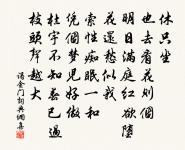 休只坐
也去看花則個
明日滿庭紅欲墮
花還愁似我
索性痴眠一和
凭個夢兒好做
杜宇不知春已過
枝頭聲越大
謁金門